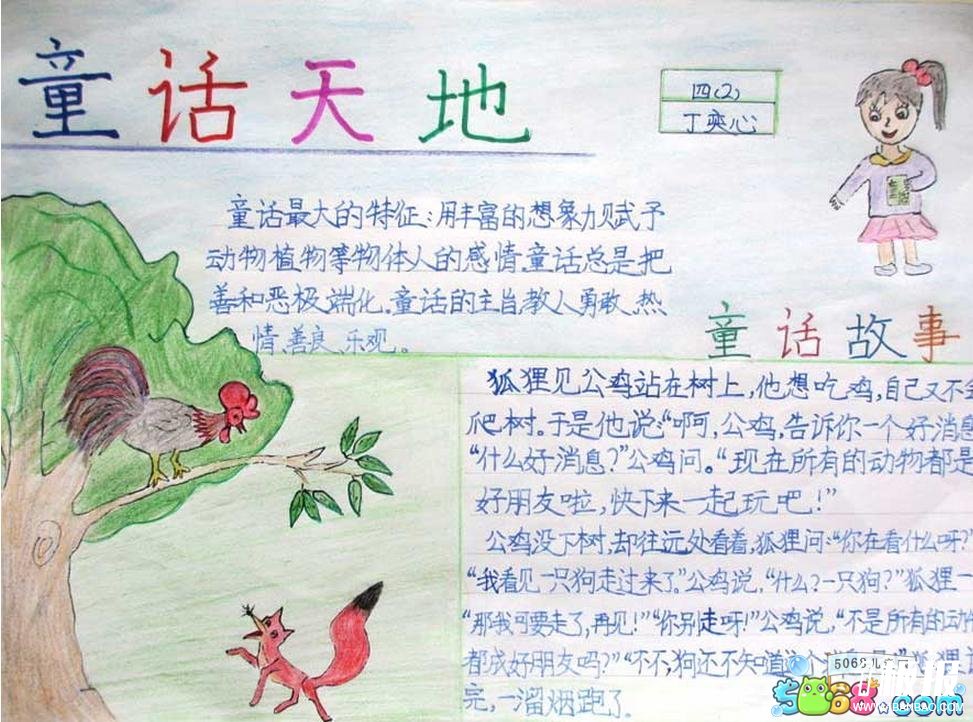 童话天地
四(2)
丁奕心
童话最大的特征:用丰富的想象力赋予
动物植物等物体人的感情.童话总是把
善和恶极端化.童话的主旨,教人勇敢、热
情、善良、乐观。
童话故事
狐狸见公鸡站在树上,他想吃鸡,自己又不
爬树。于是他说:“啊,公鸡,告诉你一个好消息
“什么好消息?”公鸡问。“现在所有的动物都是
好朋友啦,快下来一起玩吧!”
公鸡没下树,却往远处看着,狐狸问:“你在看什么呀?”
“我看见一只狗走过来了”公鸡说,“什么?一只狗?”狐狸一
“那我可要走了,再见!”“你别走呀!”公鸡说,“不是所有的动
都成好朋友吗?”“不,不,狗还不知道 狐狸
完,一溜烟跑了.
5068
.com
WWW.1BANBAO.COM